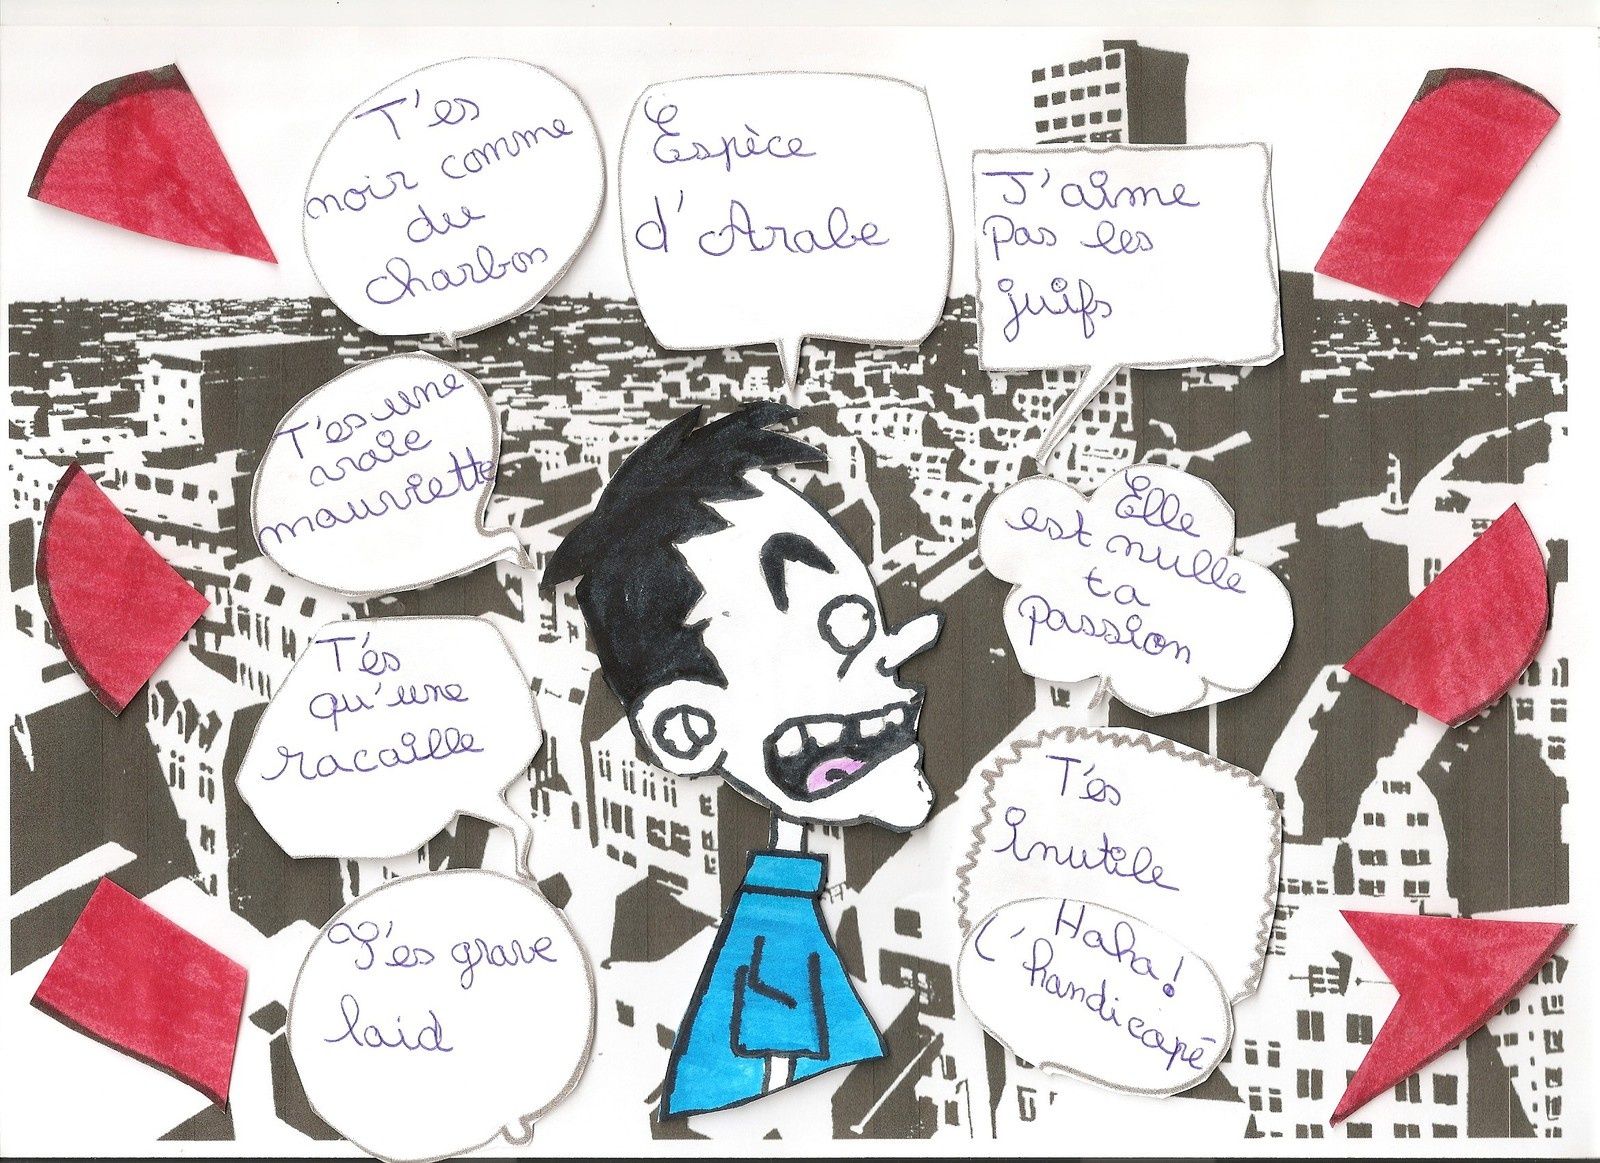 T'es
noir comme
du
charbon
Espèce
d'Arabe
J'aime
pas les
juifs
T'es une
vraie
mauviette
Elle
est nulle
ta
passion
T'és
qu'une
racaille
T'és
inutile
T'es grave
laid
Haha!
L'handicapé